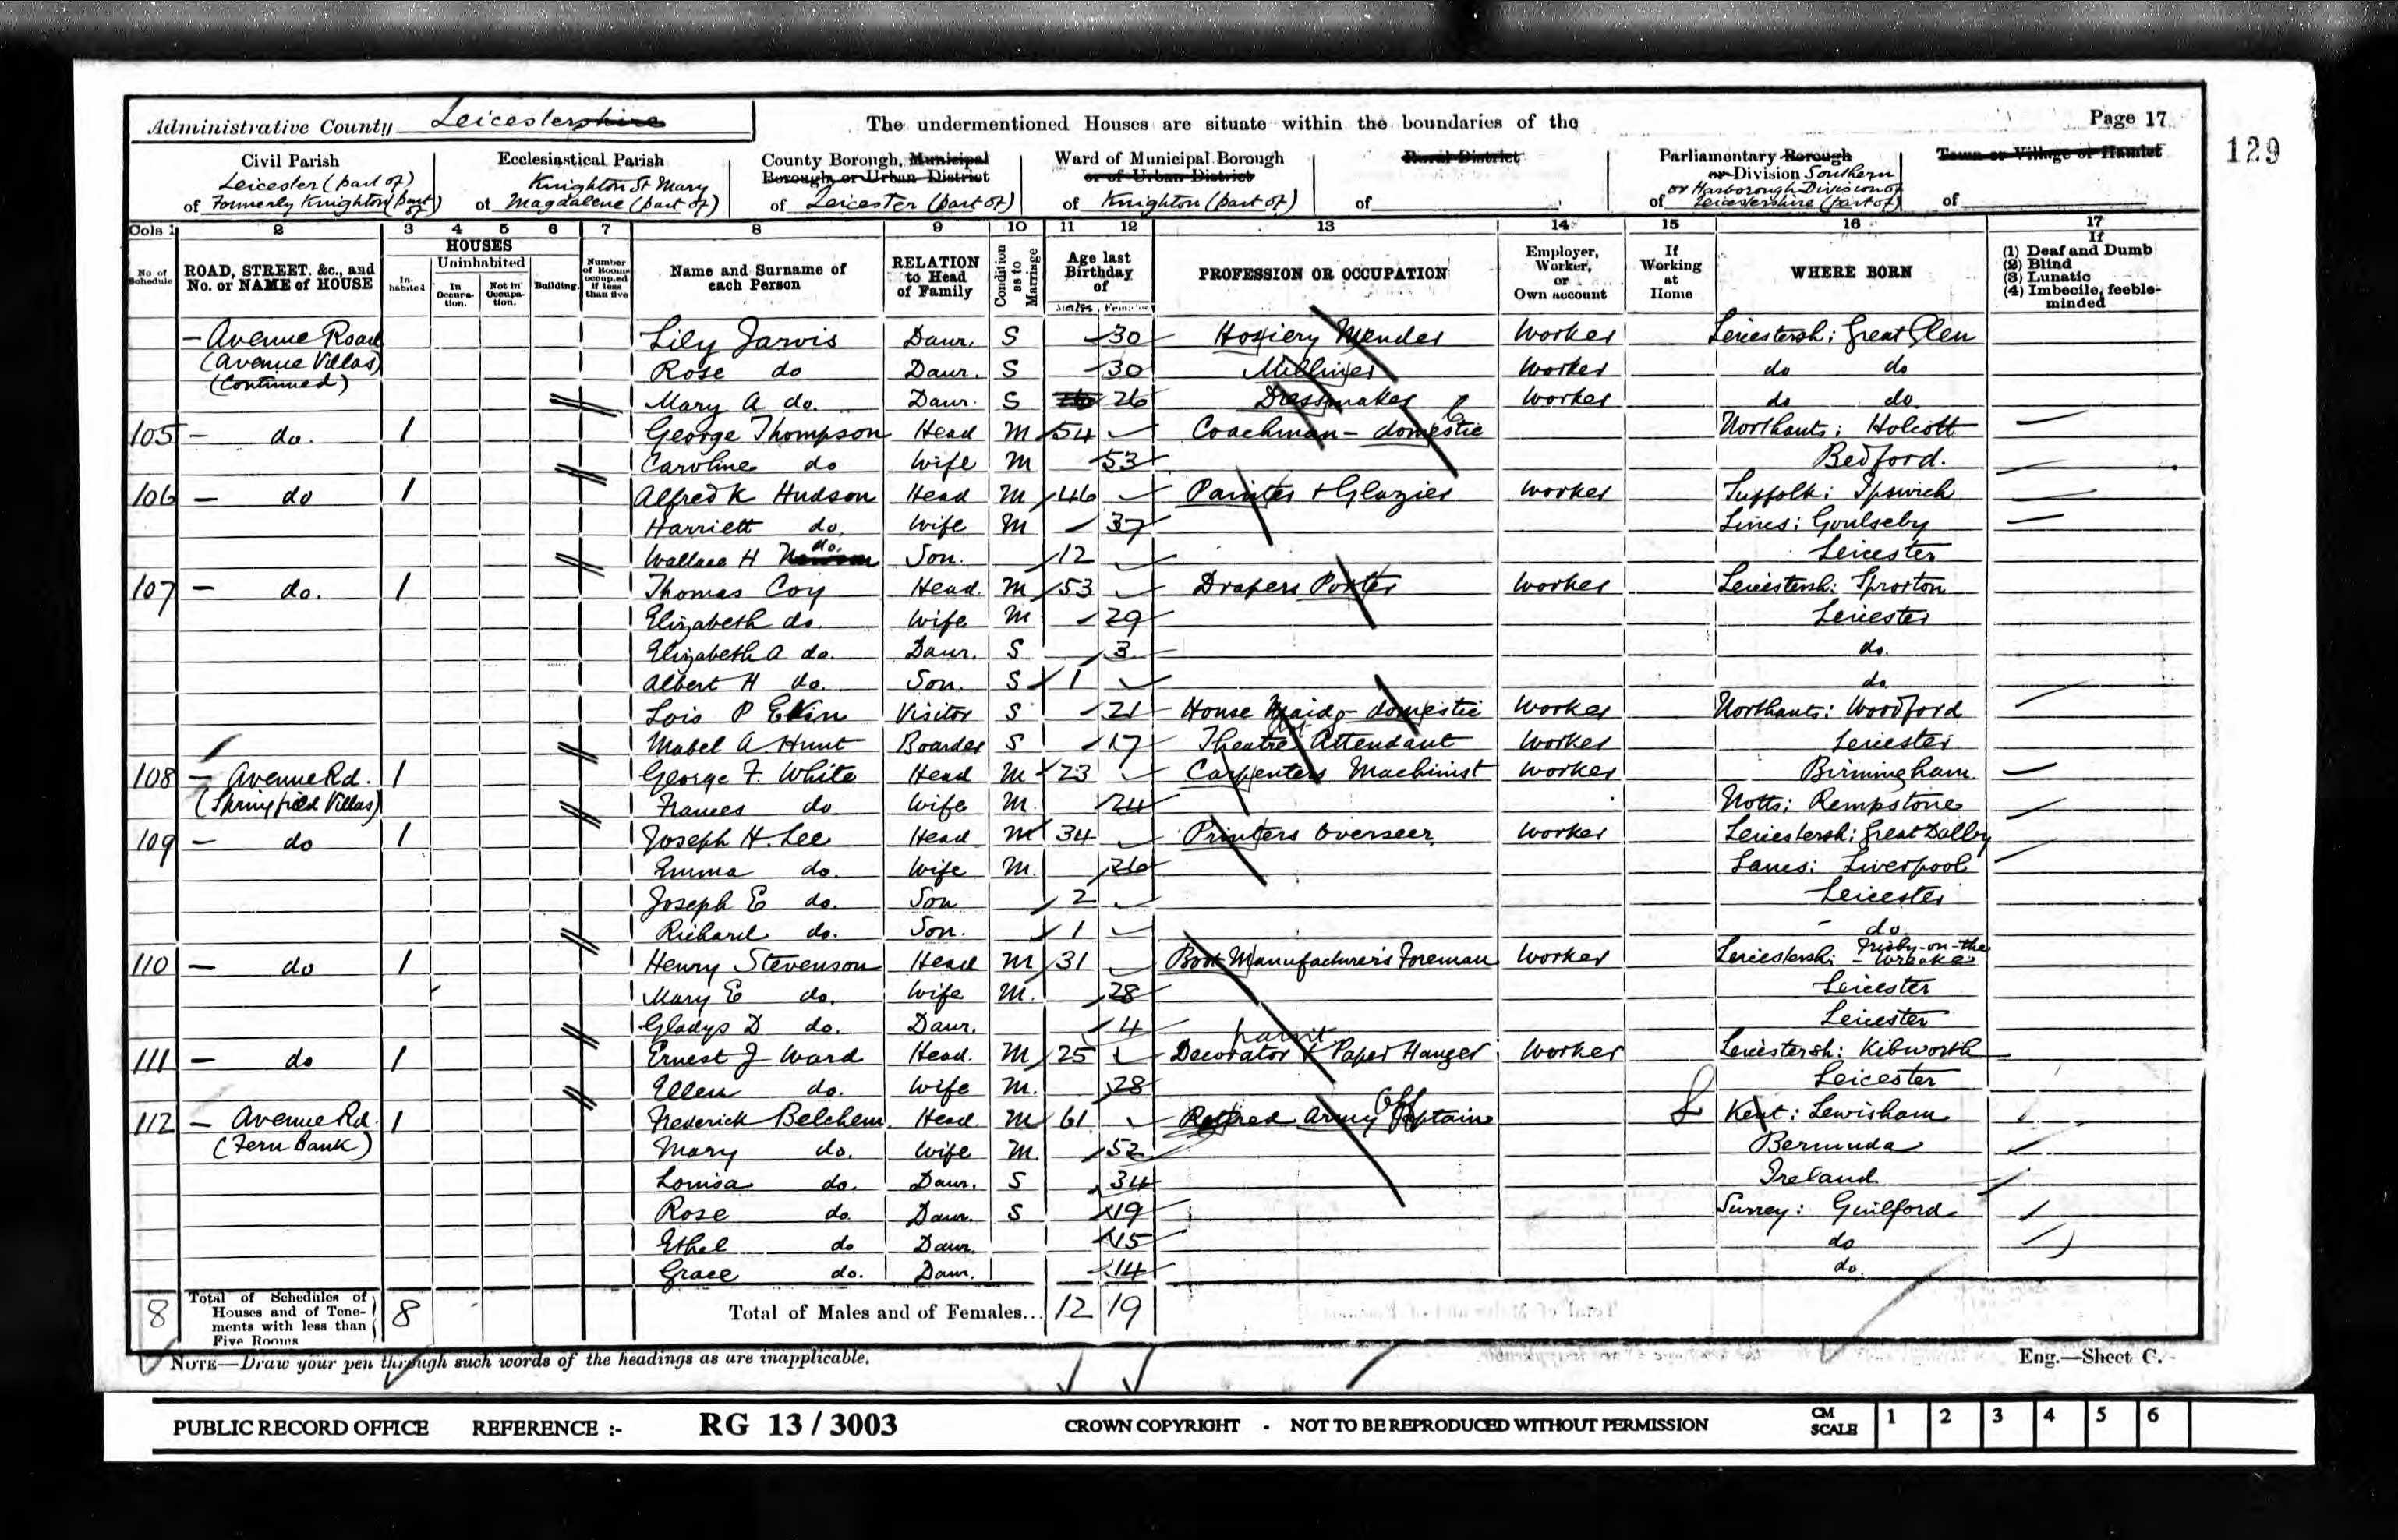 Administrative County Leicestershire
The undermentioned Houses are situate within the boundaries of the
Page 17
129
Civil Parish Ecclesiastical Parish County Borough, Municipal Ward of Municipal Borough Rural District Parliamentary Borough Town or Village or Hamlet
Leicester (part of) Knighton St Mary Borough, or Urban District or of Urban District or Division Southern
or Harborough Division of
of Formerly Knighton (part of) of Magdalene (part of) of Leicester (part of) of Knighton (part of) of of Leicestershire (part of) of
Cols 1 2 3 4 5 6 7 8 9 10 11 12 13 14 15 16 17
No. of Schedule
ROAD, STREET, &c., and No. or NAME of HOUSE
HOUSES
Inhabited
Uninhabited
In Occupation.
Not in Occupation.
Building.
Number of Rooms occupied if less than five
Name and Surname of each Person
RELATION to Head of Family
Condition as to Marriage
Age last Birthday of
Males Females
PROFESSION OR OCCUPATION
Employer, Worker, or Own account
If Working at Home
WHERE BORN
If
(1) Deaf and Dumb
(2) Blind
(3) Lunatic
(4) Imbecile, feeble-minded
— Avenue Road Lily Jarvis Daur. S 30 Hosiery Mender Worker Leicestersh: Great Glen
(Avenue Villas) Rose do Daur. S 30 Milliner Worker do do
(Continued) Mary A do. Daur. S 26 Dressmaker Worker do do.
105 — do. 1 George Thompson Head M 54 Coachman — domestic Northants: Holcott
Caroline do Wife M 53 Bedford.
106 — do 1 Alfred K Hudson Head M 46 Painter & Glazier Worker Suffolk: Ipswich
Harriett do. Wife M 37 Lincs: Goulseby
Wallace H do. Son. 12 Leicester
107 — do. 1 Thomas Coy Head. M 53 Drapers Porter Worker Leicestersh: Sproxton
Elizabeth do. Wife M 29 Leicester
Elizabeth A do. Daur. S 3 do.
Albert H do. Son. S 1 do.
Lois P Ekin Visitor S 21 House Maid — domestic Worker Northants: Woodford
Mabel A Hunt Boarder S 17 Theatre Attendant Worker Leicester
108 — Avenue Rd. 1 George F. White Head M 23 Carpenters Machinist Worker Birmingham.
(Springfield Villas) Frances do Wife M. 24 Notts; Rempstone
109 — do 1 Joseph H. Lee Head M 34 Printers Overseer. Worker Leicestersh: Great Dalby
Emma do. Wife M. 26 Lancs: Liverpool
Joseph E do. Son 2 Leicester
Richard do. Son. 1 do
110 — do 1 Henry Stevenson Head M 31 Boot Manufacturers Foreman Worker Leicestersh: Frisby-on-the-Wreake
Mary E do. Wife M. 28 Leicester
Gladys D do. Daur. 4 Leicester
111 — do 1 Ernest J Ward Head. M 25 Decorator paint & Paper Hanger Worker Leicestersh: Kibworth
Ellen do. Wife M. 28 Leicester
112 — Avenue Rd. 1 Frederick Belchem. Head M 61 Retired Army Captain Off Kent: Lewisham
(Fern Bank) Mary do. Wife M. 52 Bermuda
Louisa do. Daur. S 34 Ireland
Rose do. Daur. S 19 Surrey: Guilford
Ethel do Daur. 15 do
Grace do. Daur. 14 do.
8 Total of Schedules of Houses and of Tenements with less than Five Rooms 8 Total of Males and of Females... 12 19
NOTE—Draw your pen through such words of the headings as are inapplicable.
Eng.—Sheet C.
PUBLIC RECORD OFFICE REFERENCE :- RG 13 / 3003 CROWN COPYRIGHT - NOT TO BE REPRODUCED WITHOUT PERMISSION CM SCALE 1 2 3 4 5 6